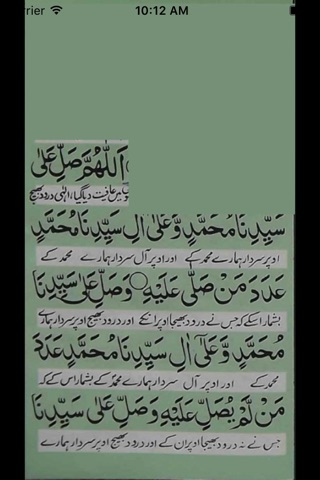 rrier 10:12 AM
اَللّٰهُمَّ صَلِّ عَلٰى
میں عافیت دیا گیا، الٰہی درود بھیج
سَيِّدِنَا مُحَمَّدٍ وَّعَلٰٓى اٰلِ سَيِّدِنَا مُحَمَّدٍ
اوپر سردار ہمارے محمد کے اور اوپر آل سردار ہمارے محمد کے
عَدَدَ مَنْ صَلّٰى عَلَيْهِ ○ وَصَلِّ عَلٰى سَيِّدِنَا
بشمار اسکے کہ جس نے درود بھیجا اوپر انکے اور درود بھیج اوپر سردار ہمارے
مُحَمَّدٍ وَّعَلٰٓى اٰلِ سَيِّدِنَا مُحَمَّدٍ عَدَدَ
محمد کے اور اوپر آل سردار ہمارے محمد کے بشمار اس کے کہ
مَنْ لَّمْ يُصَلِّ عَلَيْهِ وَصَلِّ عَلٰى سَيِّدِنَا
جس نے نہ درود بھیجا اوپر ان کے اور درود بھیج اوپر سردار ہمارے